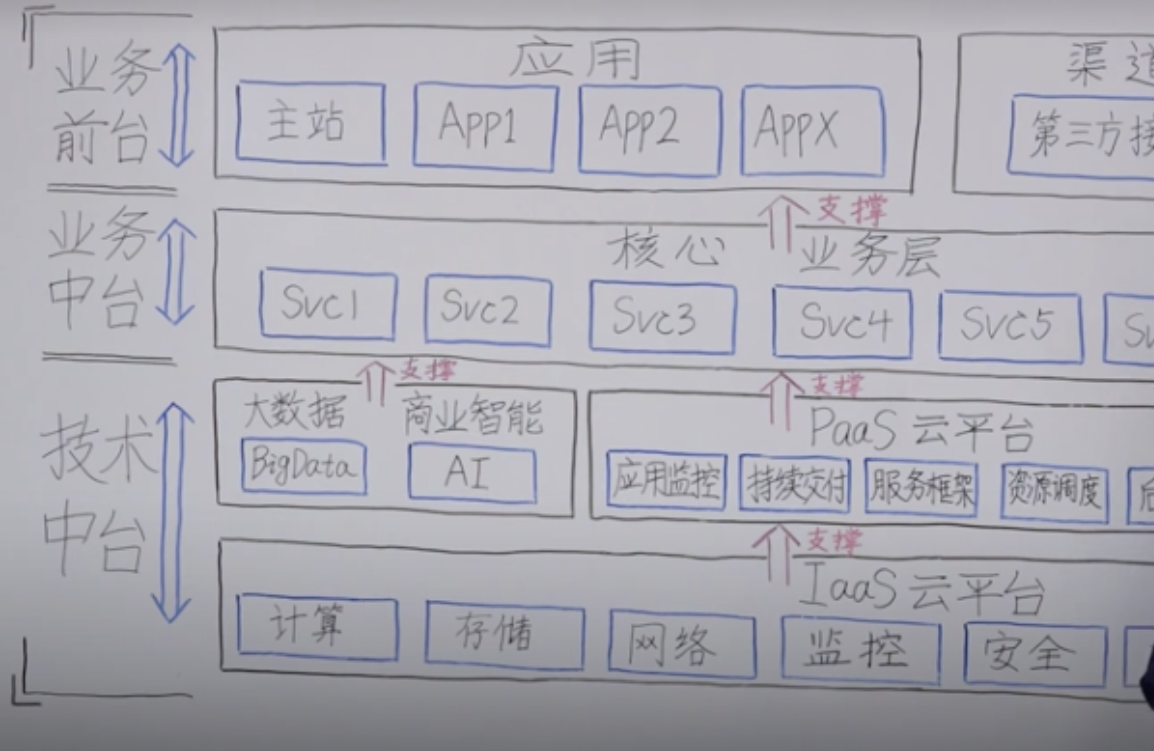 业务
前台
应用
主站 App1 App2 AppX
渠道
第三方接
支撑
业务
中台
核心 业务层
Svc1 Svc2 Svc3 Svc4 Svc5
支撑 支撑
技术
中台
大数据 商业智能
BigData AI
PaaS 云平台
应用监控 持续交付 服务框架 资源调度
支撑
IaaS 云平台
计算 存储 网络 监控 安全